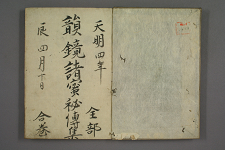 天明四年
全部
韻鏡諸賓祕傳集
辰四月下日
合壹